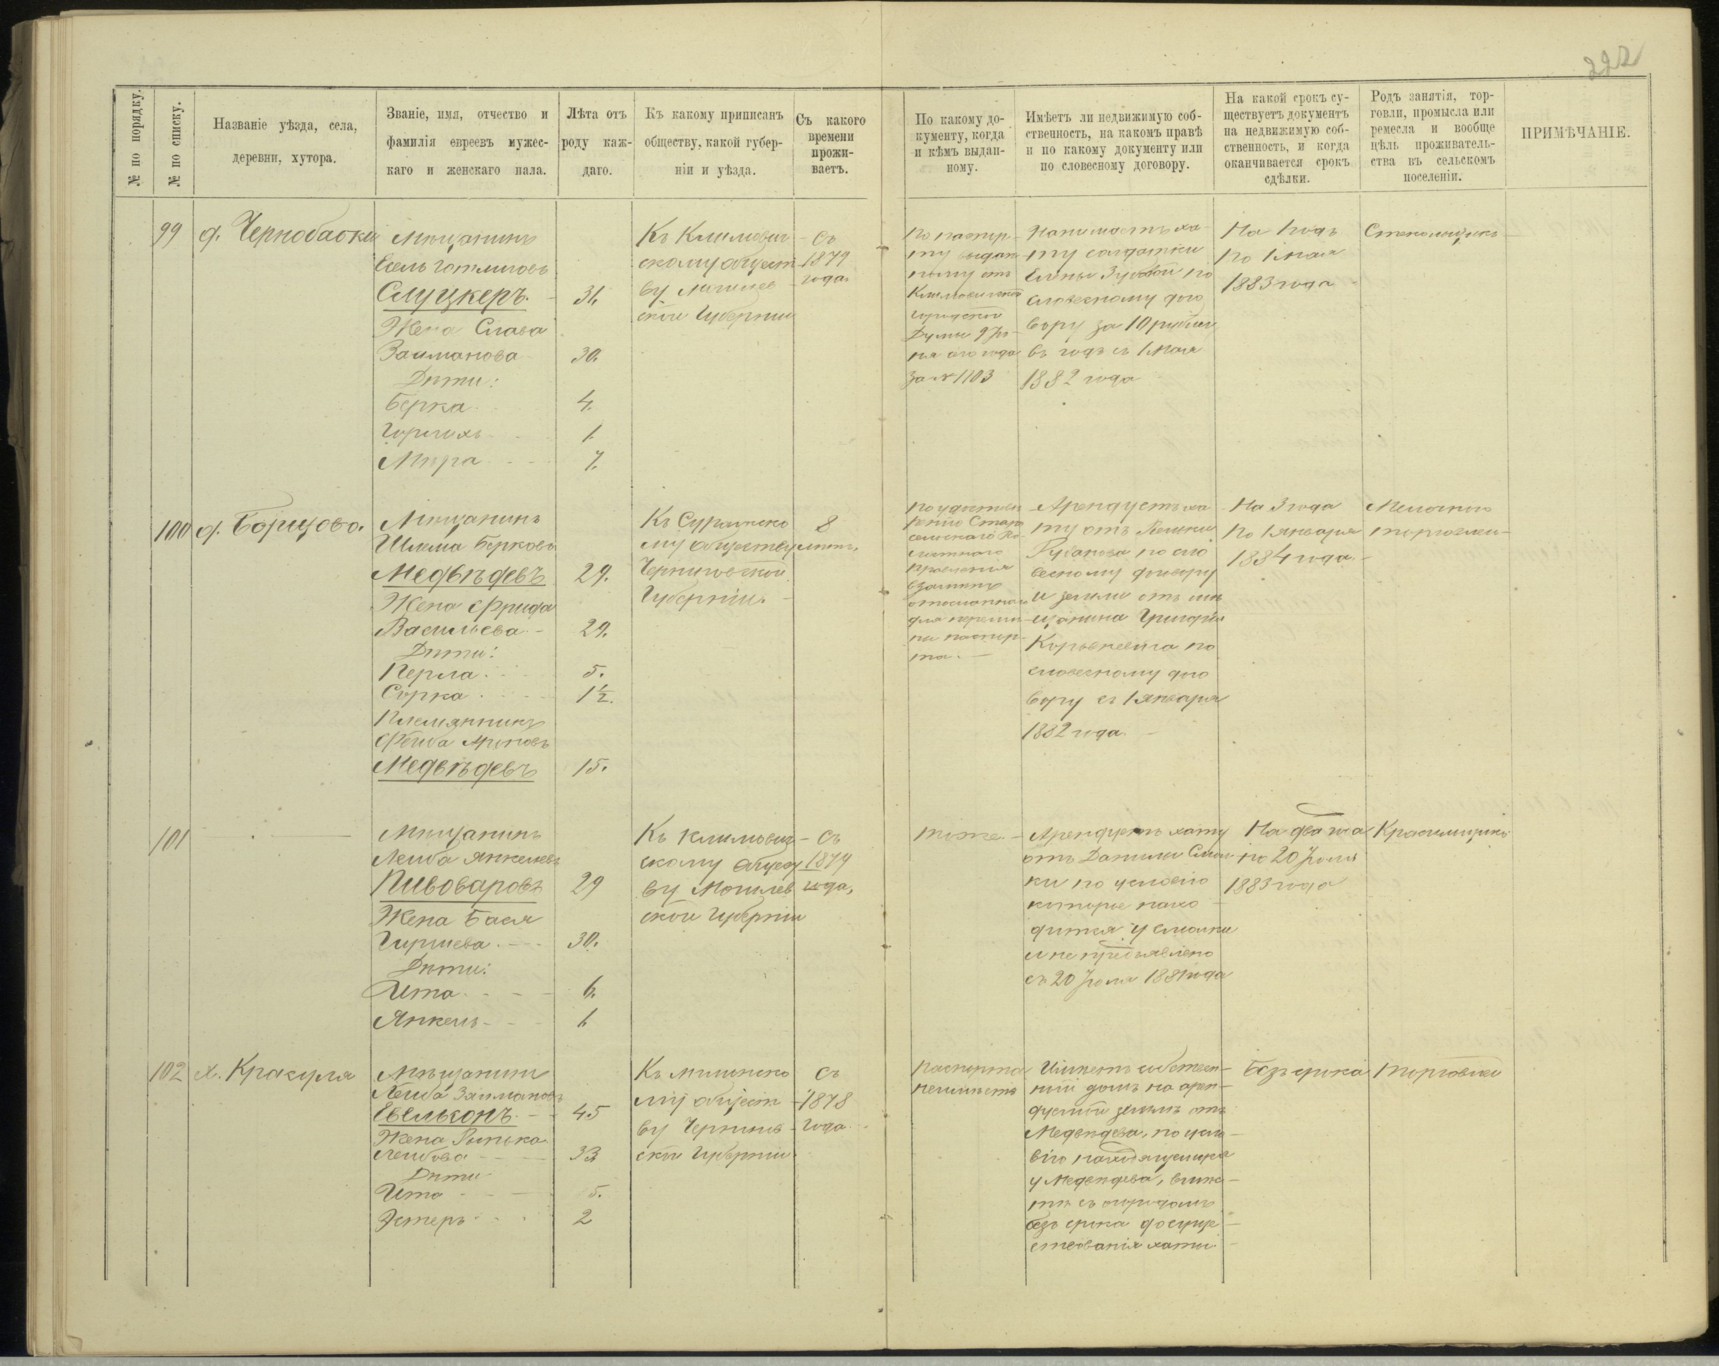 222
№ по порядку.
№ по списку.
Названіе уѣзда, села,
деревни, хутора.
Званіе, имя, отчество и
фамилія евреевъ мужес-
каго и женскаго пала.
Лѣта отъ
роду каж-
даго.
Къ какому приписанъ
обществу, какой губер-
ніи и уѣзда.
Съ какого
времени
прожи-
ваетъ.
По какому до-
кументу, когда
и кѣмъ выдан-
ному.
Имѣетъ ли недвижимую соб-
ственность, на какомъ правѣ
и по какому документу или
по словесному договору.
На какой срокъ су-
ществуетъ документъ
на недвижимую соб-
ственность, и когда
оканчивается срокъ
сдѣлки.
Родъ занятія, тор-
говли, промысла или
ремесла и вообще
цѣль проживатель-
ства въ сельскомъ
поселеніи.
ПРИМѢЧАНІЕ.
99
д.
Мѣщанинъ
Слуцкеръ.
31.
Жена Слава
Залманова
30.
Дѣти:
Берка
4.
1.
Мѣра
7.
Къ Климович-
скому общест
ву Могилев
ской Губерніи
Съ
1879
года.
По паспор-
ту выдан-
ному отъ
Климовичской
городской
Думы
за № 1103
Нанимаетъ ха-
ту солдатки
по
словесному дого
вору за 10 рублей
въ годъ съ 1 мая
1882 года
На 1 годъ
по 1 мая
1883 года
Стекольщикъ
100
д. Борщово.
Мѣщанинъ
Шлема Берковъ
Медвѣдевъ
29.
Жена Фрида
Васильева
29.
Дѣти:
Перла
5.
Сорка
1½.
Племянникъ
Медвѣдевъ
15.
Къ Суражско
му обществу
Черниговской
Губерніи.
8
лѣтъ.
правленія
для перемѣ
ны паспор-
та.
Арендуетъ ха-
ту отъ
по сло
весному договору
и земли отъ мѣ
щанина Григорія
по
словесному дого
вору съ 1 января
1882 года.
На 3 года
по 1 января
1884 года
Мелочною
торговлею
101
Мѣщанинъ
Лейба Янкелевъ
Пивоваровъ
29
Жена Бася
Гиршева
30.
Дѣти:
Ита
6.
Янкель
1.
Къ Климович-
скому общест
ву Могилев
ской Губерніи
Съ
1879
года.
тоже
Арендуетъ хату
отъ Данилы
по условію
которое нахо
дится у
и не предъявлено
съ 20 Іюля 1881 года
На два года
по 20 Іюля
1883 года
Красильщикъ
102
х. Красуля
Мѣщанинъ
Лейба Залмановъ
45
Жена
Лейбова
33
Дѣти
Ита
5.
Эстеръ
2
Къ Мглинско
му общест
ву Чернигов-
ской Губерніи
Съ
1878
года
Паспорта
неимѣетъ
Имѣетъ собствен-
ный домъ на арен-
дуемой землѣ отъ
Медвѣдева, по усло-
вію находящемуся
у Медвѣдева,
безъ срока до суще-
ствованія хаты
Безъ срока
торговлею